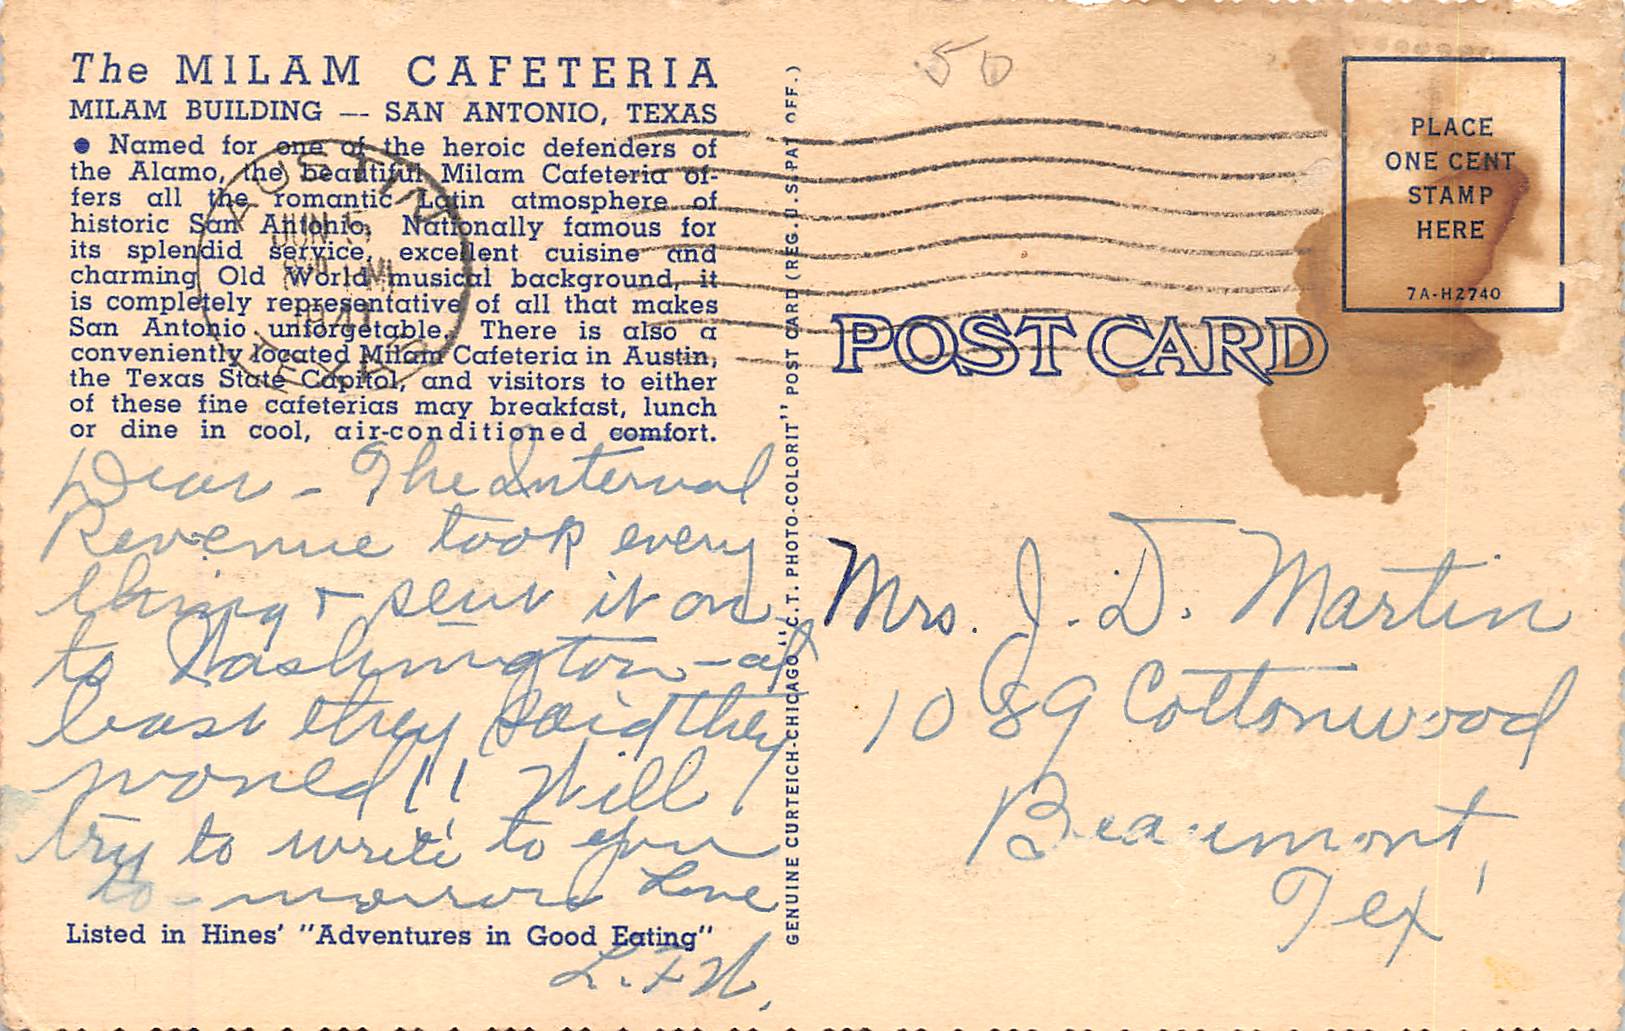 The MILAM CAFETERIA
MILAM BUILDING — SAN ANTONIO, TEXAS
● Named for one of the heroic defenders of
the Alamo, the beautiful Milam Cafeteria of-
fers all the romantic Latin atmosphere of
historic San Antonio. Nationally famous for
its splendid service, excellent cuisine and
charming Old World musical background, it
is completely representative of all that makes
San Antonio unforgetable. There is also a
conveniently located Milam Cafeteria in Austin,
the Texas State Capitol, and visitors to either
of these fine cafeterias may breakfast, lunch
or dine in cool, air-conditioned comfort.
AUSTIN
JUN 5
TEXAS
Dear - The Internal
Revenue took every
thing + sent it on
to Washington - at
least they said they
would!! Will
try to write to you
to-morrow Love
Listed in Hines' "Adventures in Good Eating"
GENUINE CURTEICH-CHICAGO "C.T. PHOTO-COLORIT" POST CARD (REG. U.S. PAT. OFF.)
50
PLACE
ONE CENT
STAMP
HERE
7A-H2740
POST CARD
Mrs. J. D. Martin
1089 Cottonwood
Beaumont,
Tex